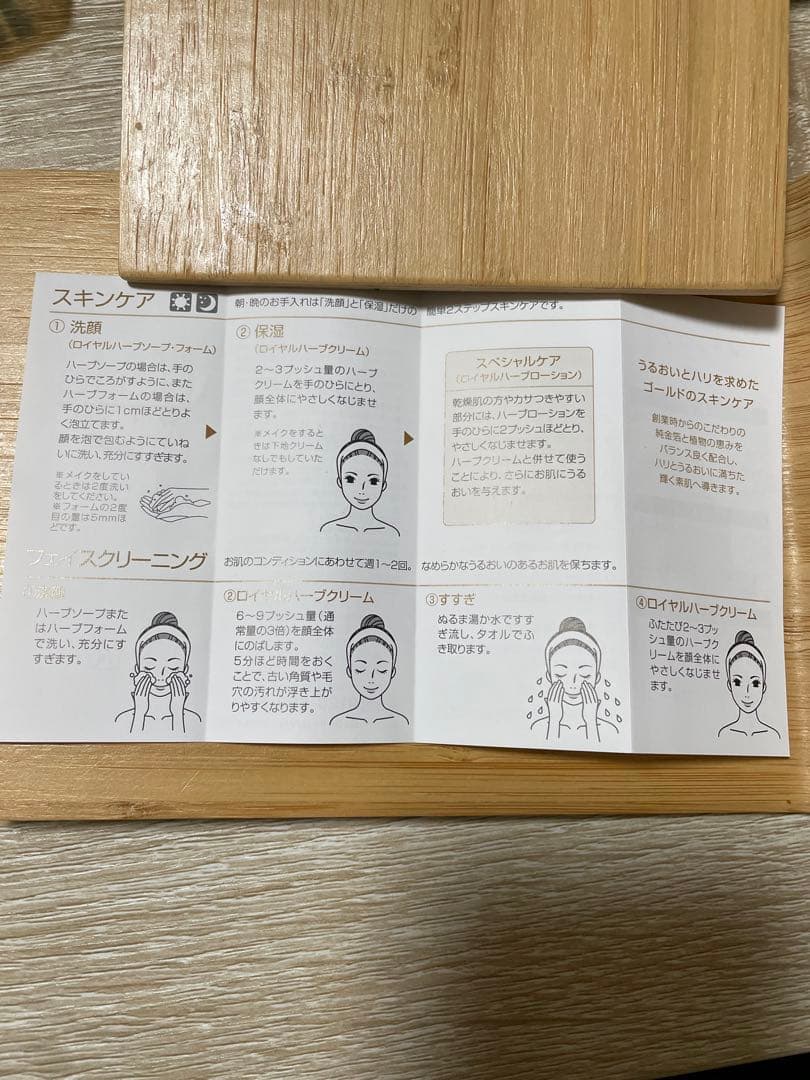 スキンケア
朝・晩のお手入れは「洗顔」と「保湿」だけの 簡単2ステップスキンケアです。
① 洗顔
(ロイヤルハーブソープ・フォーム)
ハーブソープの場合は、手の
ひらでころがすように、また
ハーブフォームの場合は、
手のひらに1cmほどとりよ
く泡立てます。
顔を泡で包むようにていね
いに洗い、充分にすすぎます。
※メイクをしてい
るときは2度洗い
をしてください。
※フォームの2度
目の量は5mmほ
どです。
② 保湿
(ロイヤルハーブクリーム)
2〜3プッシュ量のハーブ
クリームを手のひらにとり、
顔全体にやさしくなじませ
ます。
※メイクをすると
きは下地クリーム
なしでもしていた
だけます。
スペシャルケア
(ロイヤルハーブローション)
乾燥肌の方やカサつきやすい
部分には、ハーブローションを
手のひらに2プッシュほどとり、
やさしくなじませます。
ハーブクリームと併せて使う
ことにより、さらにお肌にうる
おいを与えます。
うるおいとハリを求めた
ゴールドのスキンケア
創業時からのこだわりの
純金箔と植物の恵みを
バランス良く配合し、
ハリとうるおいに満ちた
輝く素肌へ導きます。
フェイスクリーニング
お肌のコンディションにあわせて週1〜2回。 なめらかなうるおいのあるお肌を保ちます。
ハーブソープまた
はハーブフォーム
で洗い、充分にす
すぎます。
②ロイヤルハーブクリーム
6〜9プッシュ量(通
常量の3倍)を顔全体
にのばします。
5分ほど時間をおく
ことで、古い角質や毛
穴の汚れが浮き上が
りやすくなります。
③すすぎ
ぬるま湯か水ですす
ぎ流し、タオルでふ
き取ります。
④ロイヤルハーブクリーム
ふたたび2〜3プッ
シュ量のハーブク
リームを顔全体に
やさしくなじませ
ます。